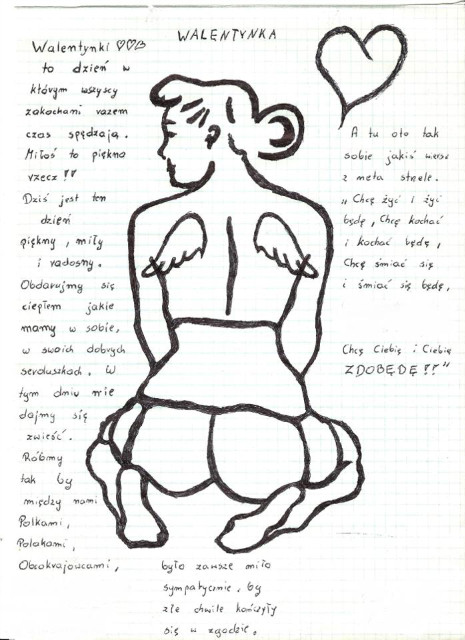 WALENTYNKA
Walentynki ♡♡♡
to dzień w
którym wszyscy
zakochani razem
czas spędzają.
Miłoś to piękna
rzecz !!
Dziś jest ten
dzień
piękny, miły
i radosny.
Obdarujmy się
ciepłem jakie
mamy w sobie,
w swoich dobrych
serduszkach. W
tym dniu nie
dajmy się
zwieść.
Róbmy
tak by
między nami
Polkami,
Polakami,
Obcokrajowcami,
było zawsze miło
sympatycznie, by
złe chwile kończyły
się w zgodzie.
A tu oto tak
sobie jakiś wiersz
z meta strzele.
„Chcę żyć i żyć
będę, Chcę kochać
i kochać będę,
Chcę śmiać się
i śmiać się będę,
Chcę Ciebie i Ciebie
ZDOBĘDĘ !!"